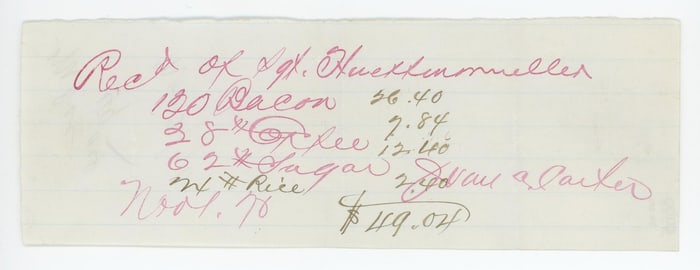 Rec'd of Sgt.
120 Bacon 26.40
28 # Coffee 7.84
62 # Sugar 12.40
24 # Rice 2.40 Parker
Nov 1.
$49.04